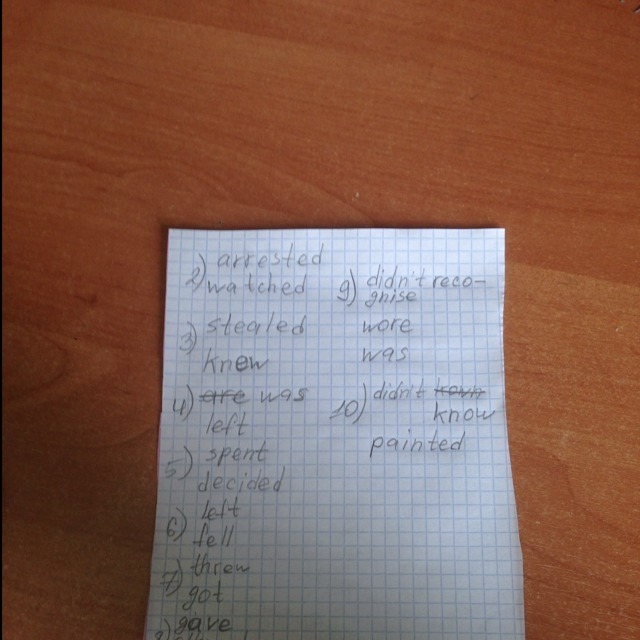 1) arrested
2) watched
3) stealed
knew
4) are was
left
5) spent
decided
6) left
fell
7) threw
got
gave
9) didn't reco-
gnise
wore
was
10) didn't
know
painted